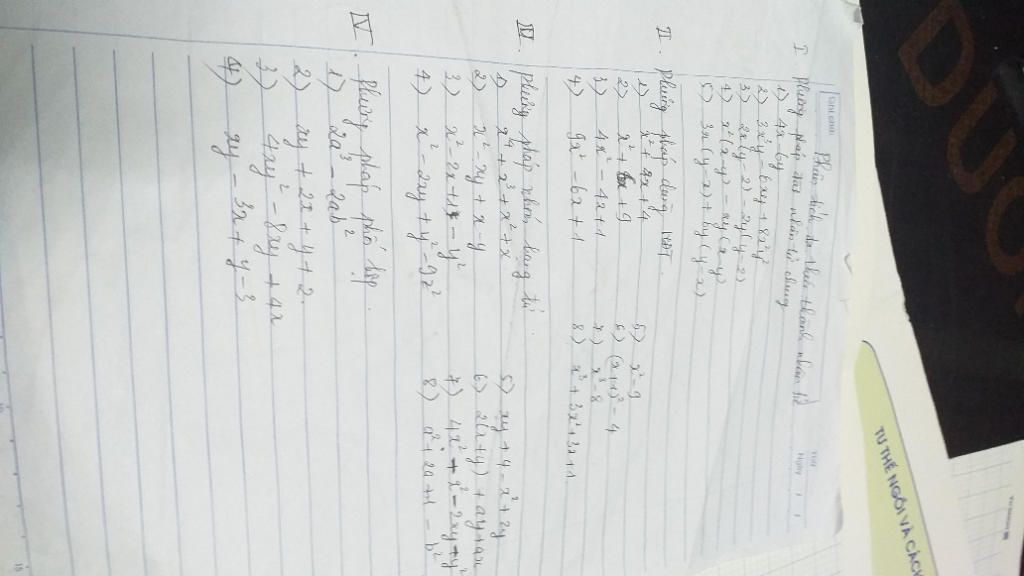 Phân tích đa thức thành nhân tử
I. Phương pháp đặt nhân tử chung
1) 4x - 6y
2) 3x²y - 6xy + 8x²y²
3) 2x(y-2) - xy(y-2)
4) x²(x-y) - xy(x-y)
5) 3x(y-x) + 6y(y-x)
II. Phương pháp dùng HĐT.
1) x² + 4x + 4
2) x² + 6x + 9
3) 4x² - 4x + 1
4) 9x² - 6x + 1
5) x² - 9
6) (x+1)² - 4
7) x³ - 8
8) x³ + 3x² + 3x + 1
III. Phương pháp nhóm hạng tử.
1) x⁴ + x³ + x² + x
2) x² - xy + x - y
3) x² - 2x + 1 - y²
4) x² - 2xy + y² - 9z²
5) xy + 4 - x² + 2y
6) 2(x+y) + ay + ax
7) 4x² + x² - 2xy + y²
8) a² + 2a + 1 - b²
IV. Phương pháp phối hợp.
1) 2a³ - 2ab²
2) xy + 2x + y + 2
3) 4xy² - 8xy + 4x
4) xy - 3x + y - 3
TƯ THẾ NGỒI VÀ CÁCH